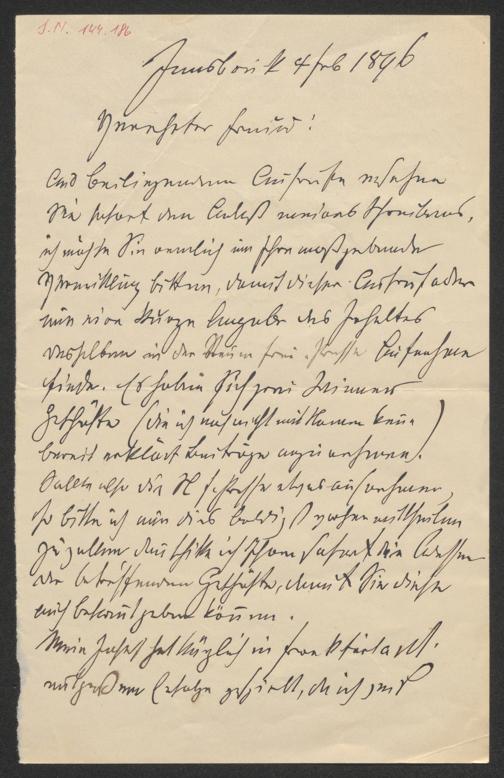 I.N. 144.186
Innsbruck 4 Feb 1896
Verehrter Freund!
Aus beiliegendem Aufrufe ersehen
Sie sofort den Anlaß meines Schreibens,
ich möchte Sie nemlich um Ihre maßgebende
Vermittlung bitten, damit dieser Aufruf oder
nur eine kurze Angabe des Inhaltes
desselben in der Neuen freien Presse Aufnahme
finde. Es haben sich zwei Wiener
Geschäfte (die ich noch nicht mit Namen kenne)
bereit erklärt Beiträge anzunehmen.
Sollte also die N f. Presse etwas aufnehmen,
so bitte ich mir dies baldigst mittheilen
zu wollen dann schicke ich Ihnen sofort die Adressen
der betreffenden Geschäfte, damit Sie diese
auch bekannt geben können.
Mein hat kürzlich in Frankfurt a M.
mit großem Erfolge gespielt, die ich